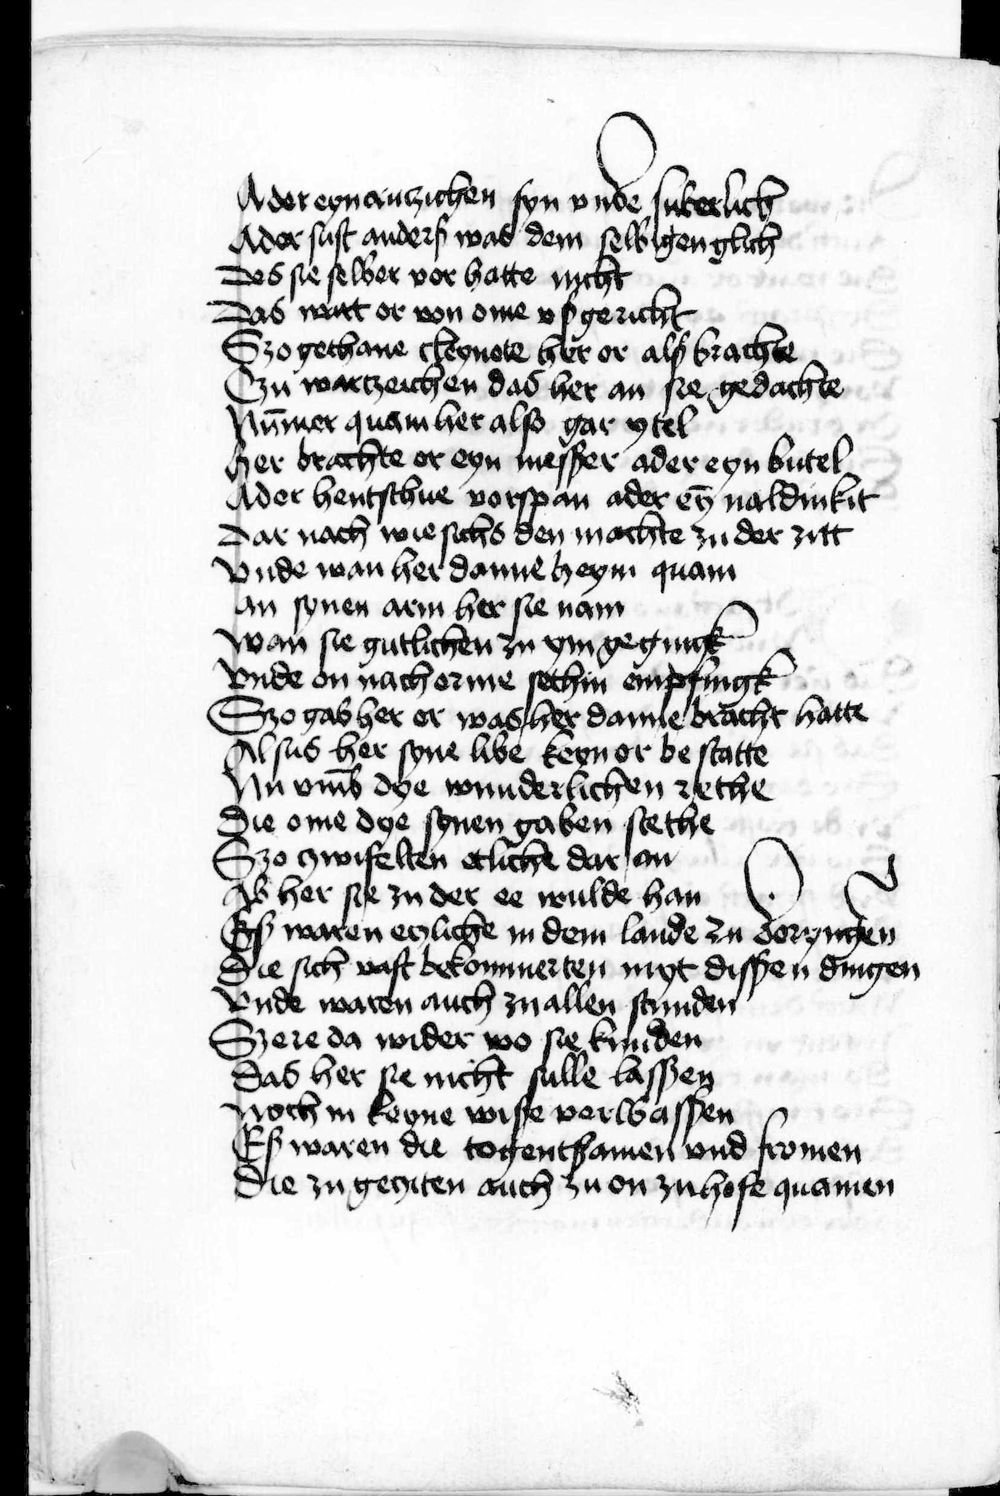 Ader eyn antzichen syn vnde suberlich
Ader sust anderß was dem selbigen glich
Des sie selber vor hatte nicht
Das wart or von ome vßgericht
Szo gethane cleynote her or alß brachte
Czu wartzeichen das her an sie gedachte
Nūmer quam her alßo gar ytel
her brachte or eyn messer ader eyn butel
Ader hentschue vorspan ader eȳ naldinkit
Dar nach wie sichs den machte zu der zitt
Vnde wan her danne heym quam
An synen arm her sie nam
Wan sie gutlichen zu ym geginck
Vnde on nach orme sethin empfingk
Szo gab her or was her danne bracht hatte
Alsus her syne libe keyn or bestatte
Nu vmb dye wunderlichen rethe
Die ome dye synen gaben stethe
Szo czwifelten etliche dar an
Ab her sie zu der ee wulde han
Eß waren etzliche in dem lande zu doryngen
Die sich vast bekommerten myt dissen dingen
Vnde waren auch zu allen stunden
Szere da wider wo sie kunden
Das her sie nicht sulle lassen
Noch in keyne wiße verwassen
Eß waren die togentsamen vnd fromen
Die zu geziten auch zu on zu hofe quamen